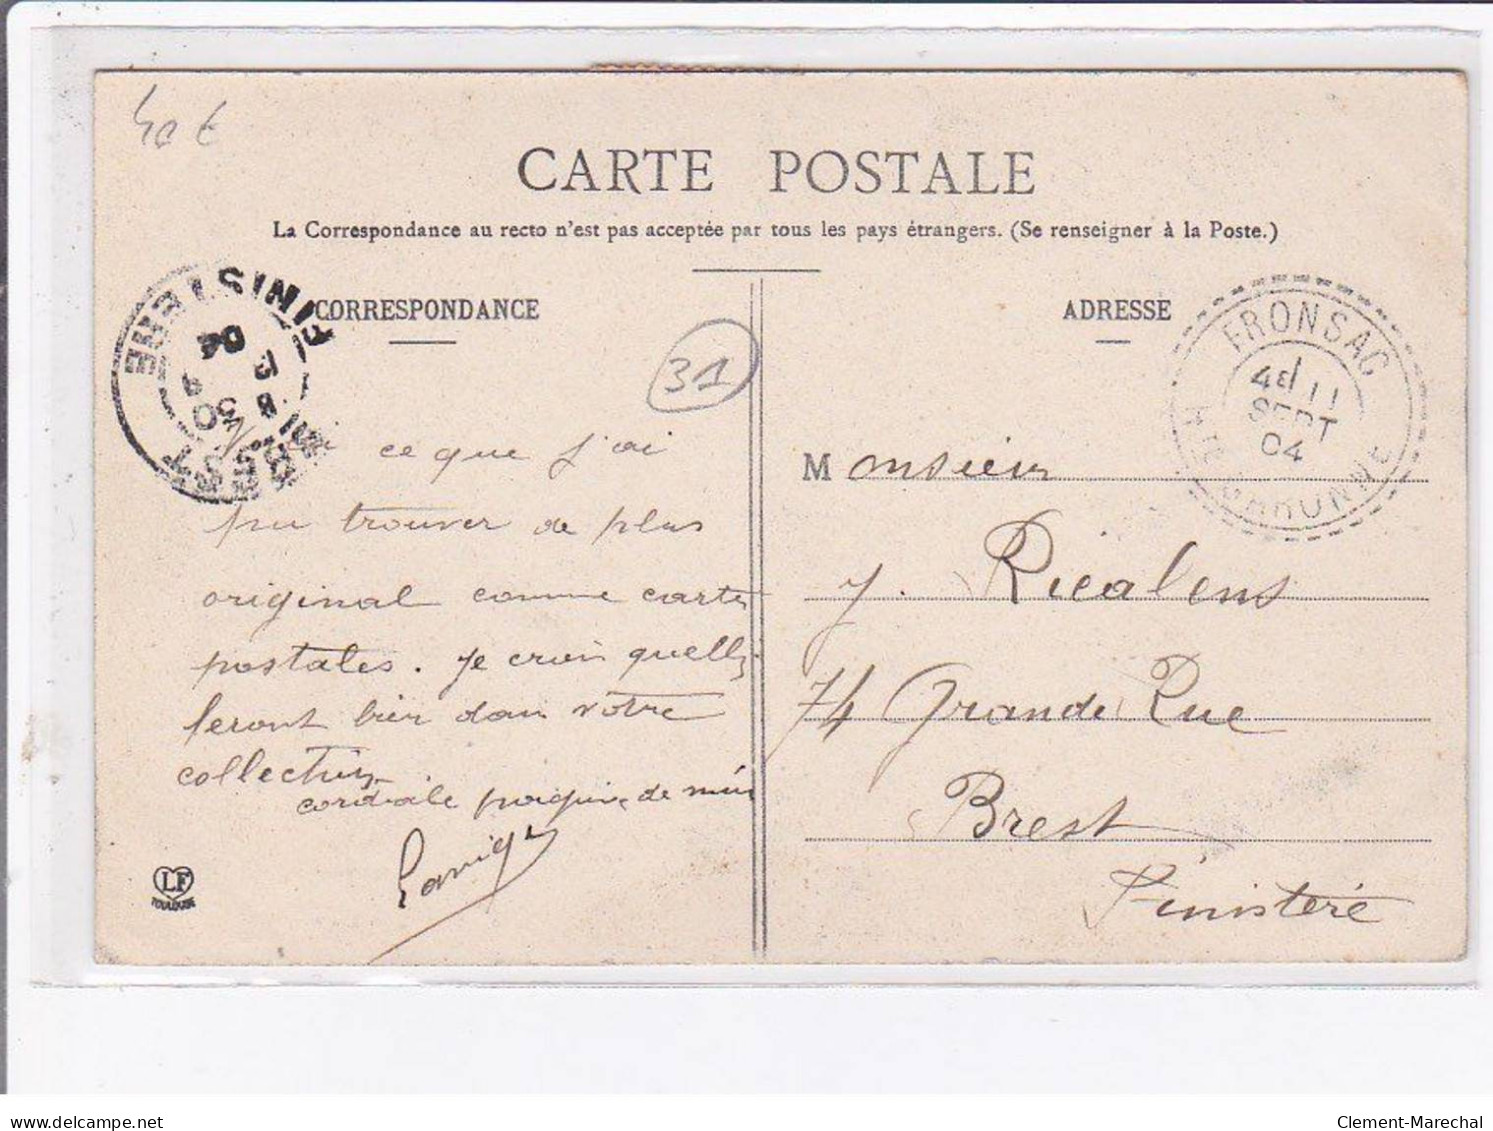 40 €
CARTE POSTALE
La Correspondance au recto n'est pas acceptée par tous les pays étrangers. (Se renseigner à la Poste.)
CORRESPONDANCE
ADRESSE
31
BREST
FINISTERE
04
FRONSAC
SEPT
04
HTE GARONNE
ce que j'ai
pu trouver de plus
original comme cartes
postales. Je crois quelles
seront bien dans votre
collection
cordiale poignée de main
Monsieur
J. Riealens
74 Grande Rue
Brest
Finistère
LF
TOULOUSE
www.delcampe.net
Clement-Marechal